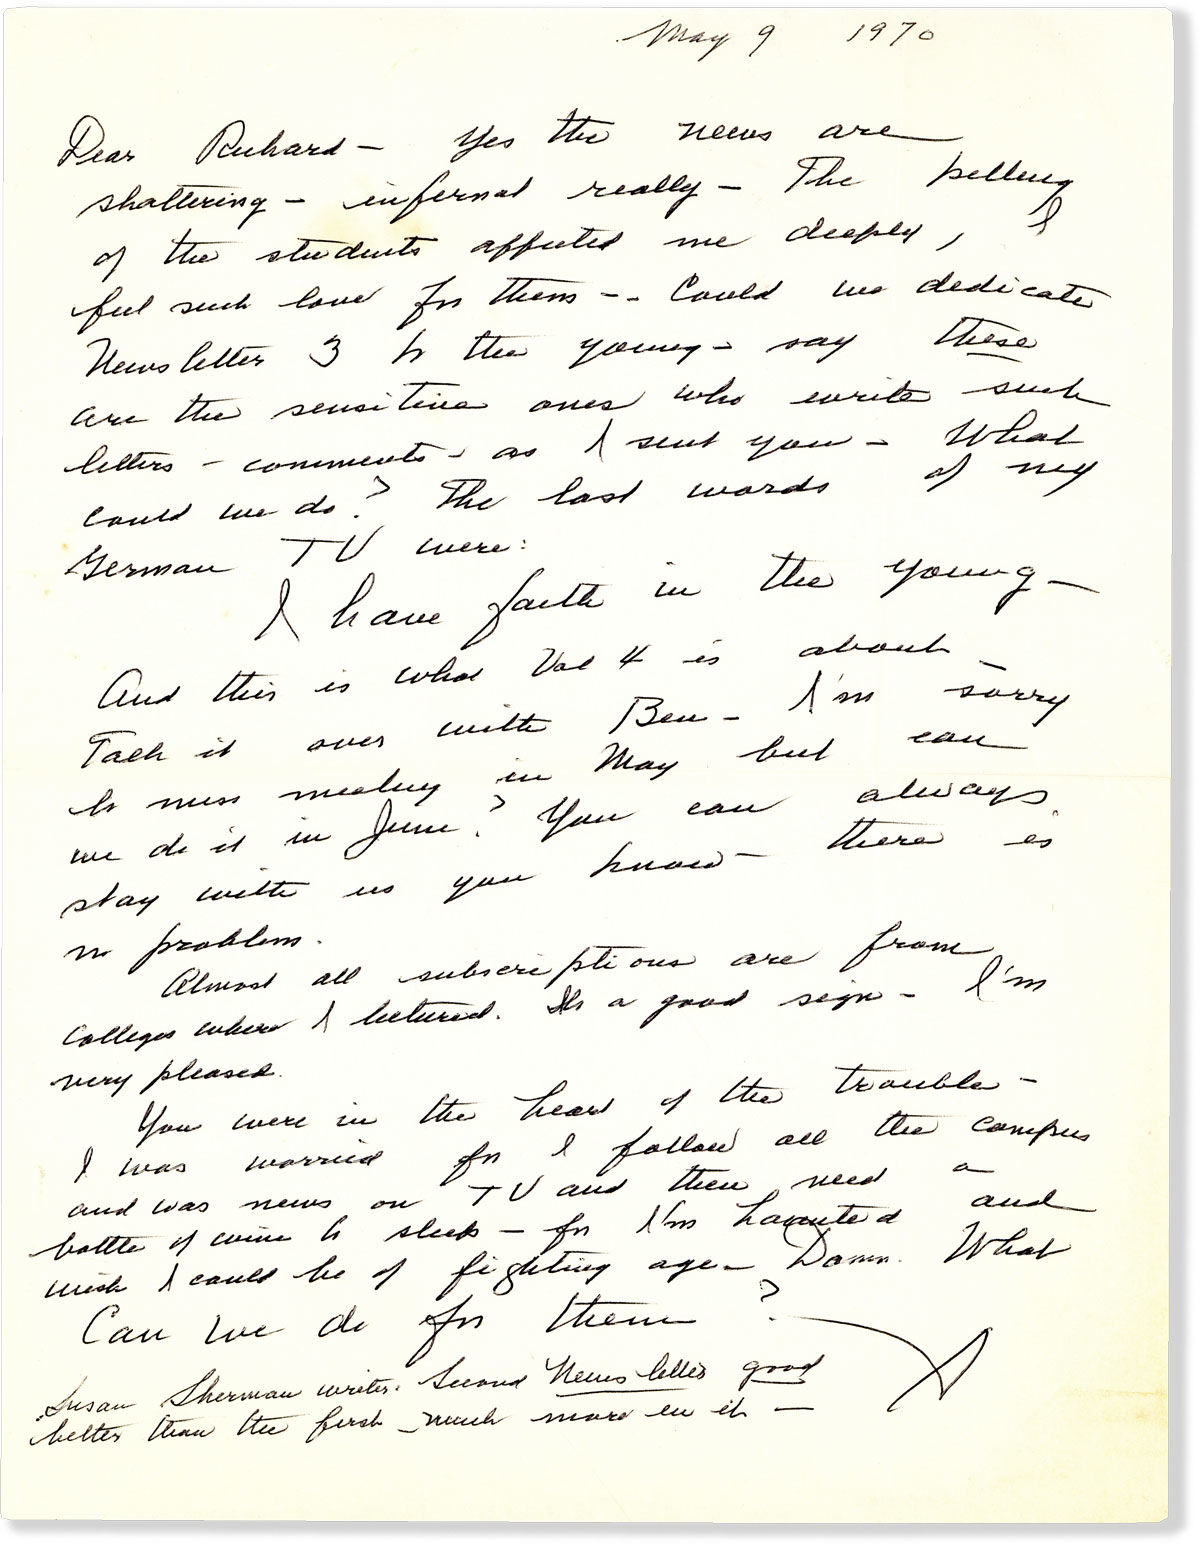 May 9 1970
Dear Richard – Yes the news are
shattering – infernal really – The killing
of the students affected me deeply, I
feel such love for them -- Could we dedicate
Newsletter 3 to the young – say these
are the sensitive ones who write such
letters – comments – as I sent you – What
could we do? The last words of my
German TV were:
I have faith in the young –
And this is what Vol 4 is about –
Talk it over with Ben – I'm sorry
to miss meeting in May but can
we do it in June? You can always
stay with us you know – there is
no problem.
Almost all subscriptions are from
Colleges where I lectured. It's a good sign – I'm
very pleased.
You were in the heart of the trouble –
I was worried for I follow all the campus
and was news on TV and then need a
bottle of wine to sleep – for I'm haunted and
wish I could be of fighting age – Damn. What
Can we do for them?
A
Susan Sherman writes. Second Newsletter good
better than the first – much more in it –